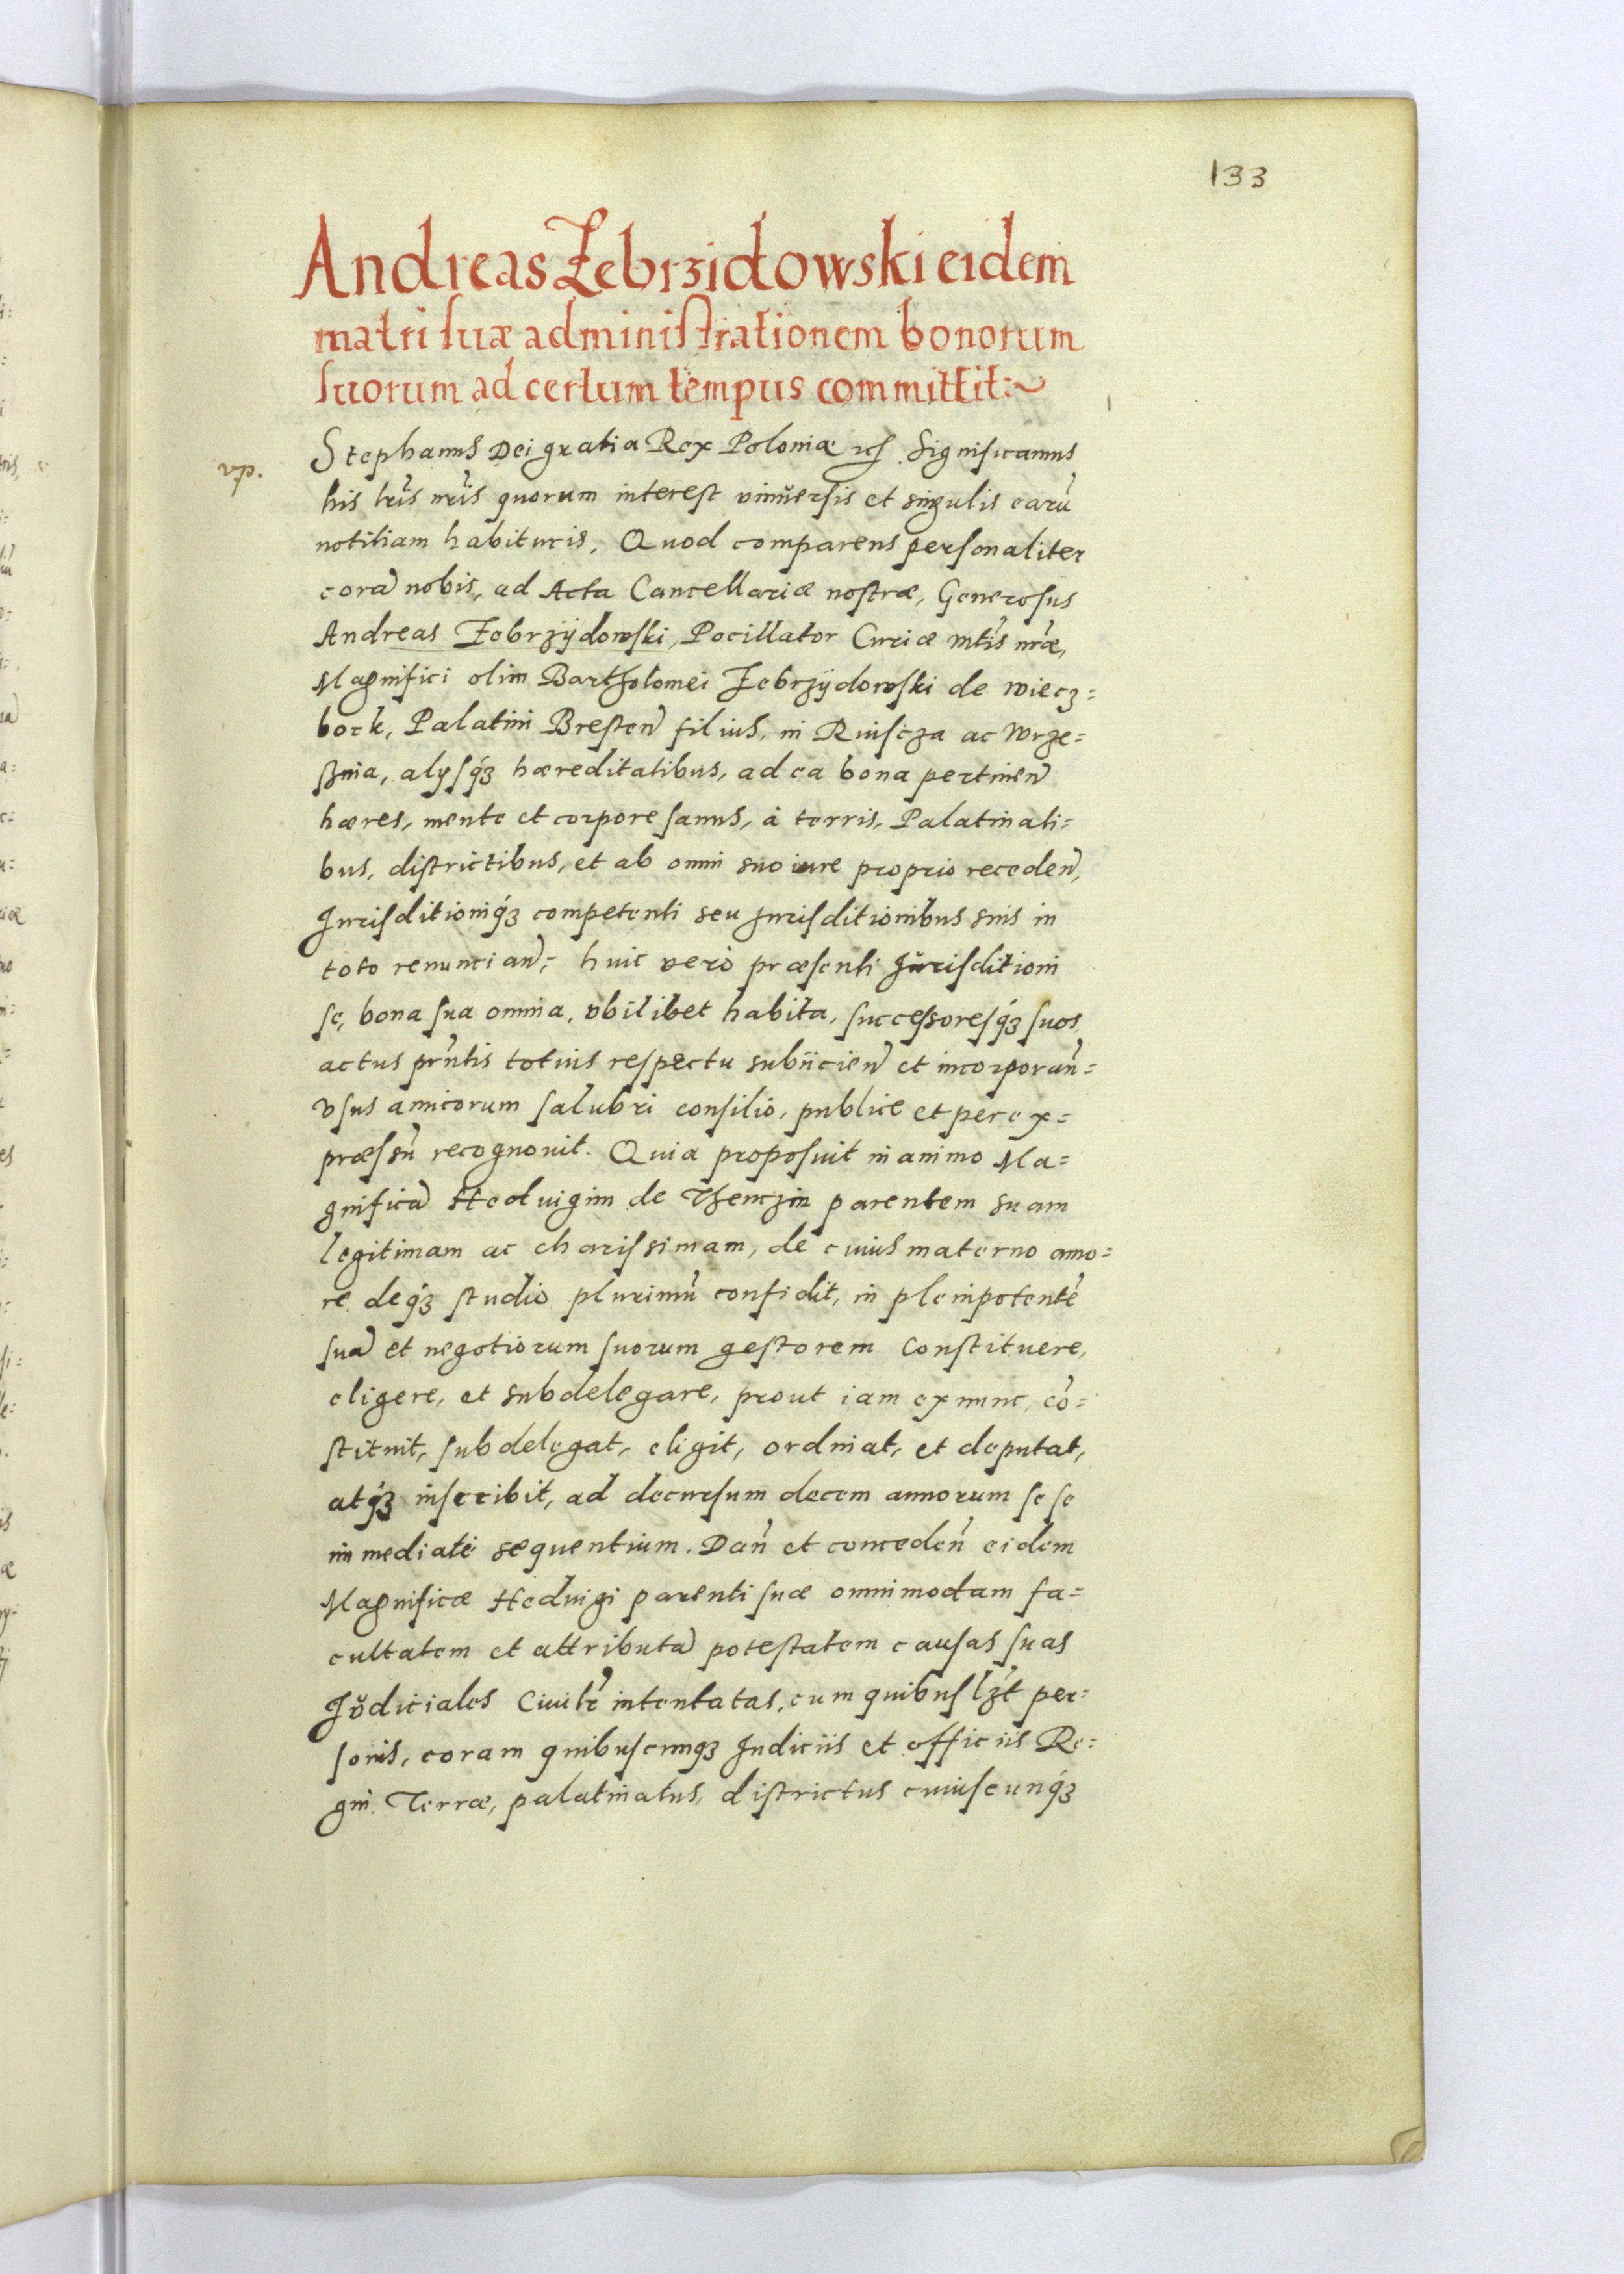 133
Andreas Zebrzidowski eidem
matri suæ administrationem bonorum
suorum ad certum tempus committit:~
vp.
Stephanus Dei gratia Rex Poloniæ etc. Significamus
his lr̃is nr̃is quorum interest vniuersis et singulis earũ
notitiam habituris. Quod comparens personaliter
corã nobis, ad Acta Cancellariæ nostræ, Generosus
Andreas Zebrzÿdowski, Pocillator Curiæ Mtĩs nr̃æ,
Magnifici olim Bartholomei Zebrzÿdowski de wiecz=
bork, Palatini Bresten̄ filius, in Ruiscza ac Wrze=
sznia, alysq́ꝫ hæreditatibus, ad ea bona pertinen̄
hæres, mente et corpore sanus, à terris, Palatinati=
bus, districtibus, et ab omni suo iure proprio receden̄,
Jurisditioniq́ꝫ competenti seu jurisditionibus suis in
toto renuncian̄; huic verò præsenti Jurisditioni
se, bona sua omnia, vbilibet habita, successoresq́ꝫ suos,
actus prñtis totius respectu subiicien̄ et incorporan̄=
vsus amicorum salubri consilio, publice et per ex=
præssũ recognouit. Quia proposuit in animo Ma=
gnificã Heduigim de Thenczin parentem suam
legitimam ac charissimam, de cuius materno amo=
re, deq́ꝫ studio plurimũ confidit, in plenipotentẽ
suã et negotiorum suorum gestorem Constituere,
eligere, et subdelegare, prout iam ex nunc, cõ=
stituit, subdelegat, eligit, ordinat, et deputat,
atq́ꝫ inscribit, ad decursum decem annorum se se
immediatè sequentium. Dan̄ et conceden̄ eidem
Magnificæ Heduigi parenti suæ omnimodam fa=
cultatem et attributã potestatem causas suas
Judiciales Ciuilr̃ intentatas, cum quibusl̃zt per=
sonis, coram quibuscunqꝫ Judiciis et officiis Re=
gni, Terræ, palatinatus, districtus cuiuscunq́ꝫ